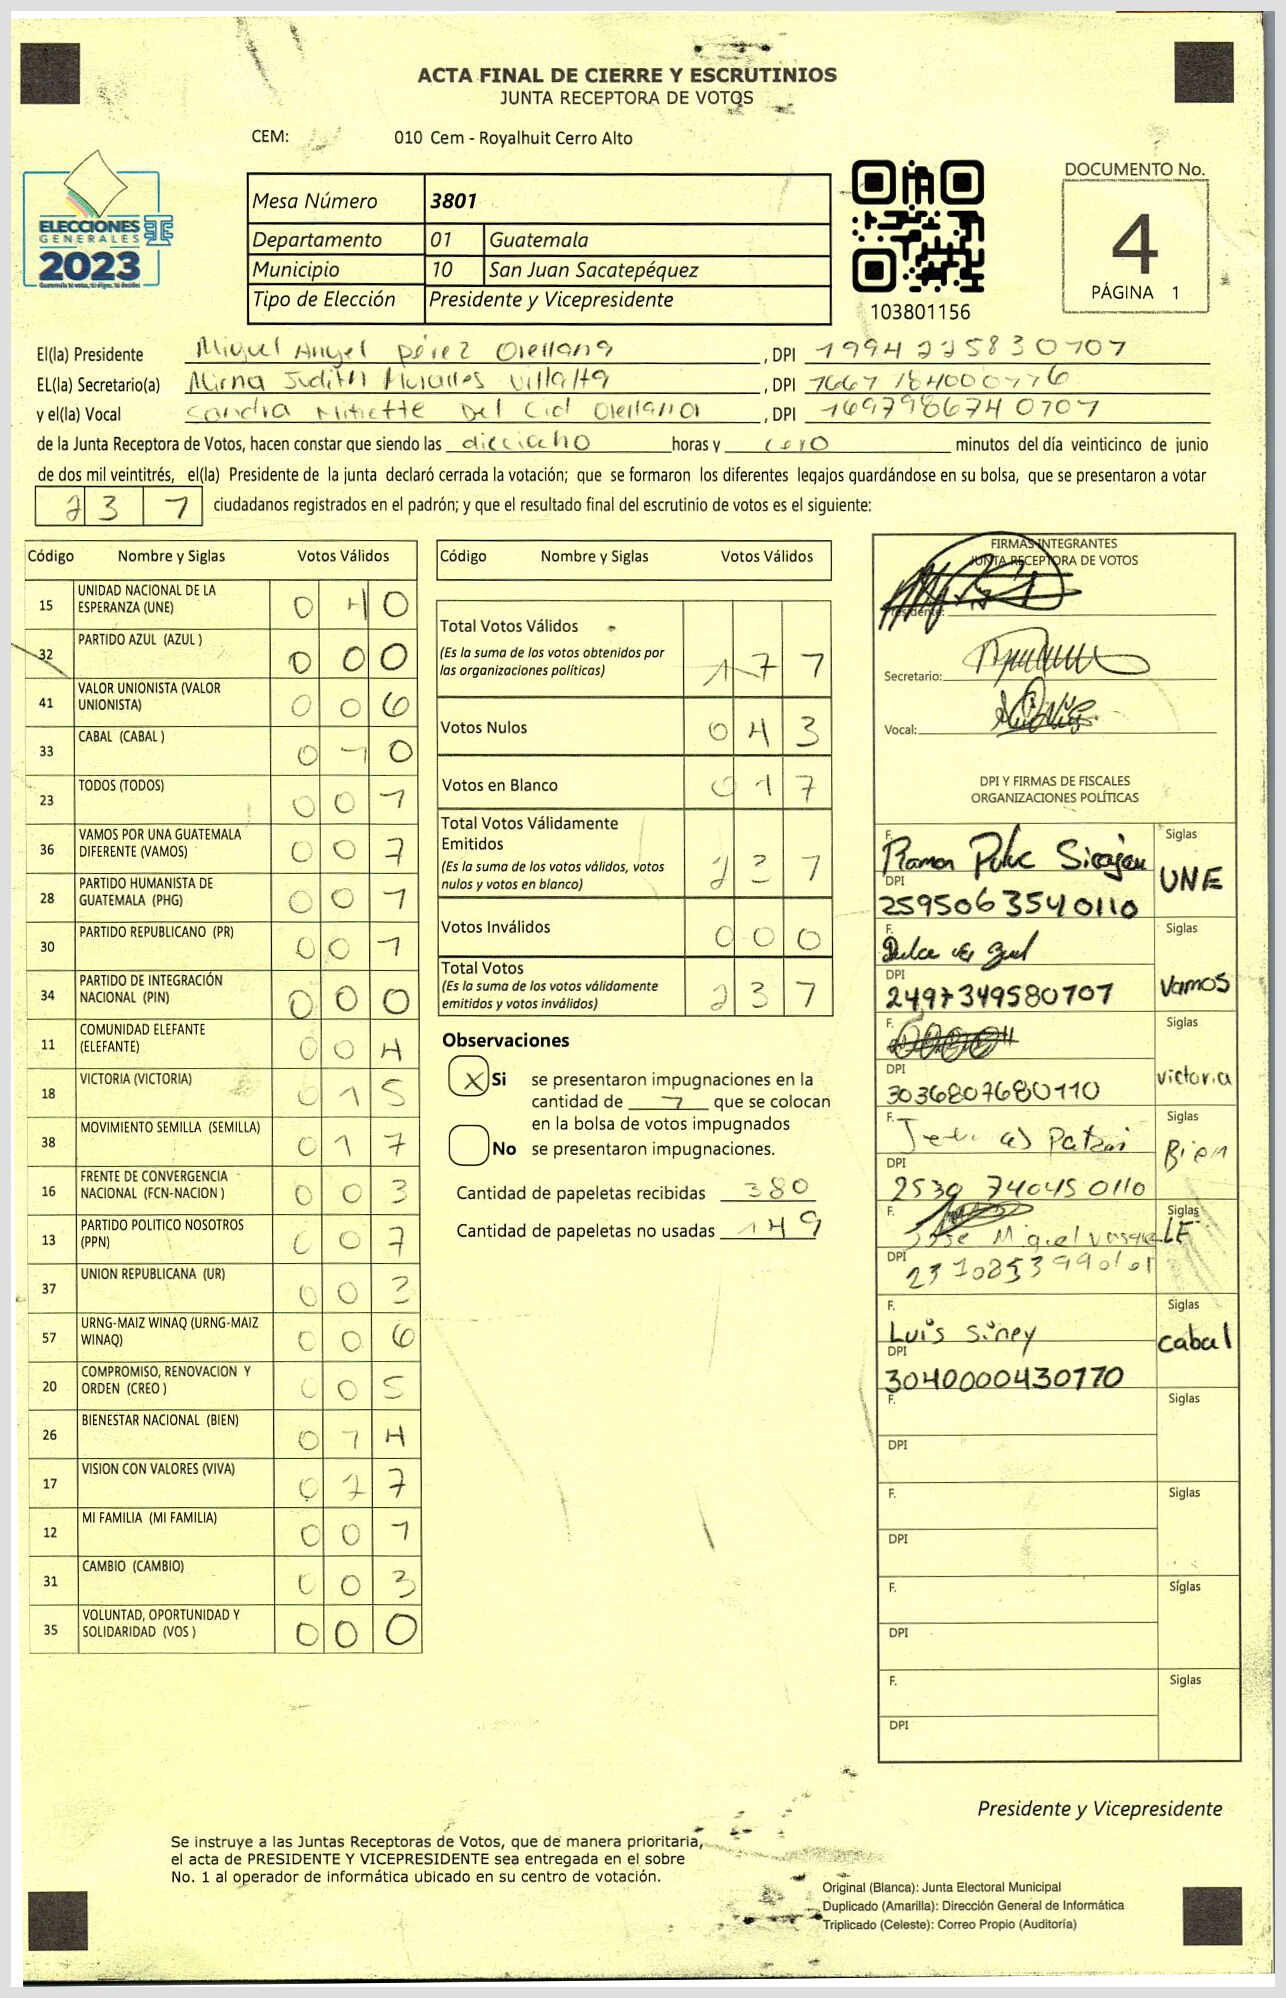 ACTA FINAL DE CIERRE Y ESCRUTINIOS
JUNTA RECEPTORA DE VOTOS
CEM: 010 Cem - Royalhuit Cerro Alto
ELECCIONES
GENERALES
2023
Mesa Número 3801
Departamento 01 Guatemala
Municipio 10 San Juan Sacatepéquez
Tipo de Elección Presidente y Vicepresidente
103801156
DOCUMENTO No.
4
PÁGINA 1
El(la) Presidente Miguel Angel Pérez Orellana, DPI 1994225830101
EL(la) Secretario(a) Mirna Judith Morales Villalta, DPI
y el(la) Vocal Sandra Del Cid Orellana, DPI 1697986740101
de la Junta Receptora de Votos, hacen constar que siendo las dieciocho horas y cero minutos del día veinticinco de junio
de dos mil veintitrés, el(la) Presidente de la junta declaró cerrada la votación; que se formaron los diferentes legajos guardándose en su bolsa, que se presentaron a votar
237 ciudadanos registrados en el padrón; y que el resultado final del escrutinio de votos es el siguiente:
Código Nombre y Siglas Votos Válidos
15 UNIDAD NACIONAL DE LA ESPERANZA (UNE) 040
32 PARTIDO AZUL (AZUL ) 000
41 VALOR UNIONISTA (VALOR UNIONISTA) 006
33 CABAL (CABAL ) 010
23 TODOS (TODOS) 001
36 VAMOS POR UNA GUATEMALA DIFERENTE (VAMOS) 007
28 PARTIDO HUMANISTA DE GUATEMALA (PHG) 001
30 PARTIDO REPUBLICANO (PR) 001
34 PARTIDO DE INTEGRACIÓN NACIONAL (PIN) 000
11 COMUNIDAD ELEFANTE (ELEFANTE) 004
18 VICTORIA (VICTORIA) 015
38 MOVIMIENTO SEMILLA (SEMILLA) 017
16 FRENTE DE CONVERGENCIA NACIONAL (FCN-NACION ) 003
13 PARTIDO POLITICO NOSOTROS (PPN) 007
37 UNION REPUBLICANA (UR)
57 URNG-MAIZ WINAQ (URNG-MAIZ WINAQ) 006
20 COMPROMISO, RENOVACION Y ORDEN (CREO ) 005
26 BIENESTAR NACIONAL (BIEN) 014
17 VISION CON VALORES (VIVA)
12 MI FAMILIA (MI FAMILIA) 001
31 CAMBIO (CAMBIO) 003
35 VOLUNTAD, OPORTUNIDAD Y SOLIDARIDAD (VOS ) 000
Código Nombre y Siglas Votos Válidos
Total Votos Válidos 177
(Es la suma de los votos obtenidos por
las organizaciones políticas)
Votos Nulos 043
Votos en Blanco 017
Total Votos Válidamente
Emitidos 237
(Es la suma de los votos válidos, votos
nulos y votos en blanco)
Votos Inválidos 000
Total Votos
(Es la suma de los votos válidamente
emitidos y votos inválidos) 237
Observaciones
X Si se presentaron impugnaciones en la
cantidad de 1 que se colocan
en la bolsa de votos impugnados
No se presentaron impugnaciones.
Cantidad de papeletas recibidas 380
Cantidad de papeletas no usadas 149
FIRMAS INTEGRANTES
JUNTA RECEPTORA DE VOTOS
Presidente:
Secretario:
Vocal:
DPI Y FIRMAS DE FISCALES
ORGANIZACIONES POLÍTICAS
F. Ramon Siglas UNE
DPI 2595063540110
F. Dulce Siglas Vamos
DPI 2497349580101
F. Siglas Victoria
DPI 3036807680110
F. Siglas Bien
DPI 2539740450110
F. Jose Miguel Siglas LE
DPI
F. Luis Siglas Cabal
DPI 3040000430110
F. Siglas
DPI
F. Siglas
DPI
F. Siglas
DPI
F. Siglas
DPI
Presidente y Vicepresidente
Se instruye a las Juntas Receptoras de Votos, que de manera prioritaria,
el acta de PRESIDENTE Y VICEPRESIDENTE sea entregada en el sobre
No. 1 al operador de informática ubicado en su centro de votación.
Original (Blanca): Junta Electoral Municipal
Duplicado (Amarilla): Dirección General de Informática
Triplicado (Celeste): Correo Propio (Auditoría)